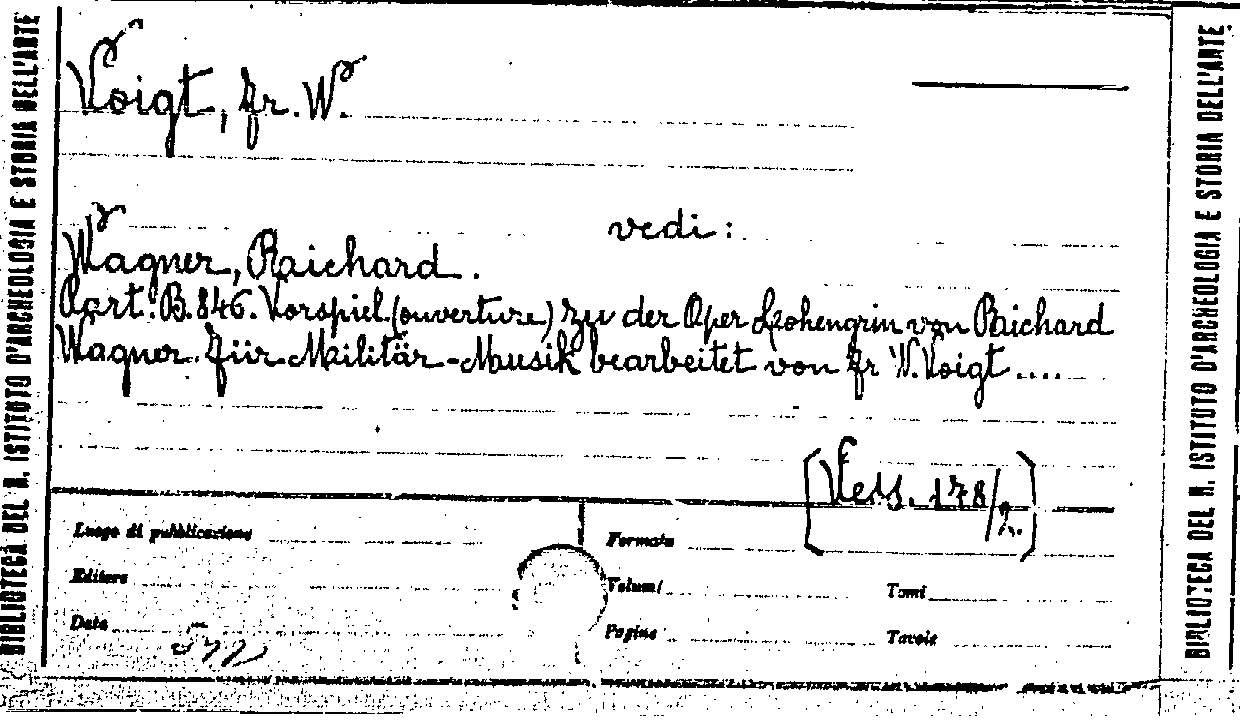 BIBLIOTECA DEL R. ISTITUTO D'ARCHEOLOGIA E STORIA DELL'ARTE
Voigt, Fr. W.
vedi:
Wagner, Raichard.
Part. B. 846. Vorspiel (ouverture) zu der Oper Lohengrin von Raichard
Wagner. Für Militär-Musik bearbeitet von Fr W. Voigt ....
[Vess. 178/2.]
Luogo di pubblicazione
Formato
Editore
Volumi
Tomi
Data
Pagine
Tavole
BIBLIOTECA DEL R. ISTITUTO D'ARCHEOLOGIA E STORIA DELL'ARTE